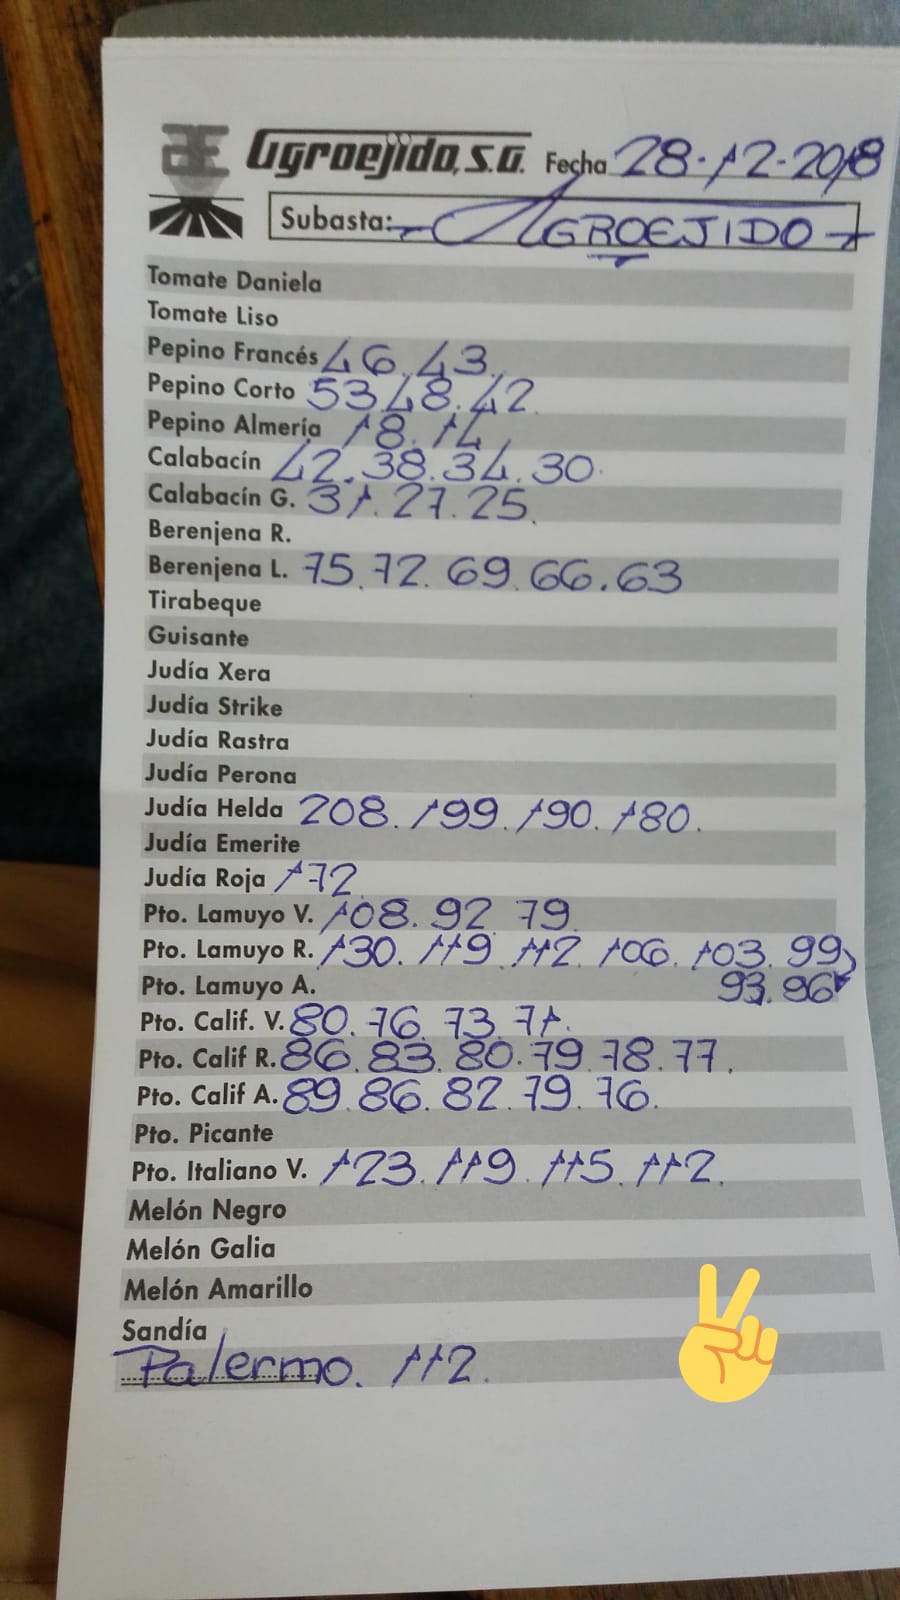 AE Agroejido, S.A. Fecha 28-12-2018
Subasta: AGROEJIDO
Tomate Daniela
Tomate Liso
Pepino Francés 46.43.
Pepino Corto 53.48.42.
Pepino Almería 18.14
Calabacín 42.38.34.30.
Calabacín G. 31.27.25.
Berenjena R.
Berenjena L. 75.72.69.66.63
Tirabeque
Guisante
Judía Xera
Judía Strike
Judía Rastra
Judía Perona
Judía Helda 208.199.190.180.
Judía Emerite
Judía Roja 172
Pto. Lamuyo V. 108.92.79
Pto. Lamuyo R. 130.119.112.106.103.99
Pto. Lamuyo A. 93.96
Pto. Calif. V. 80.76.73.71.
Pto. Calif R. 86.83.80.79.78.77.
Pto. Calif A. 89.86.82.79.76.
Pto. Picante
Pto. Italiano V. 123.119.115.112.
Melón Negro
Melón Galia
Melón Amarillo
Sandía
Palermo. 112.